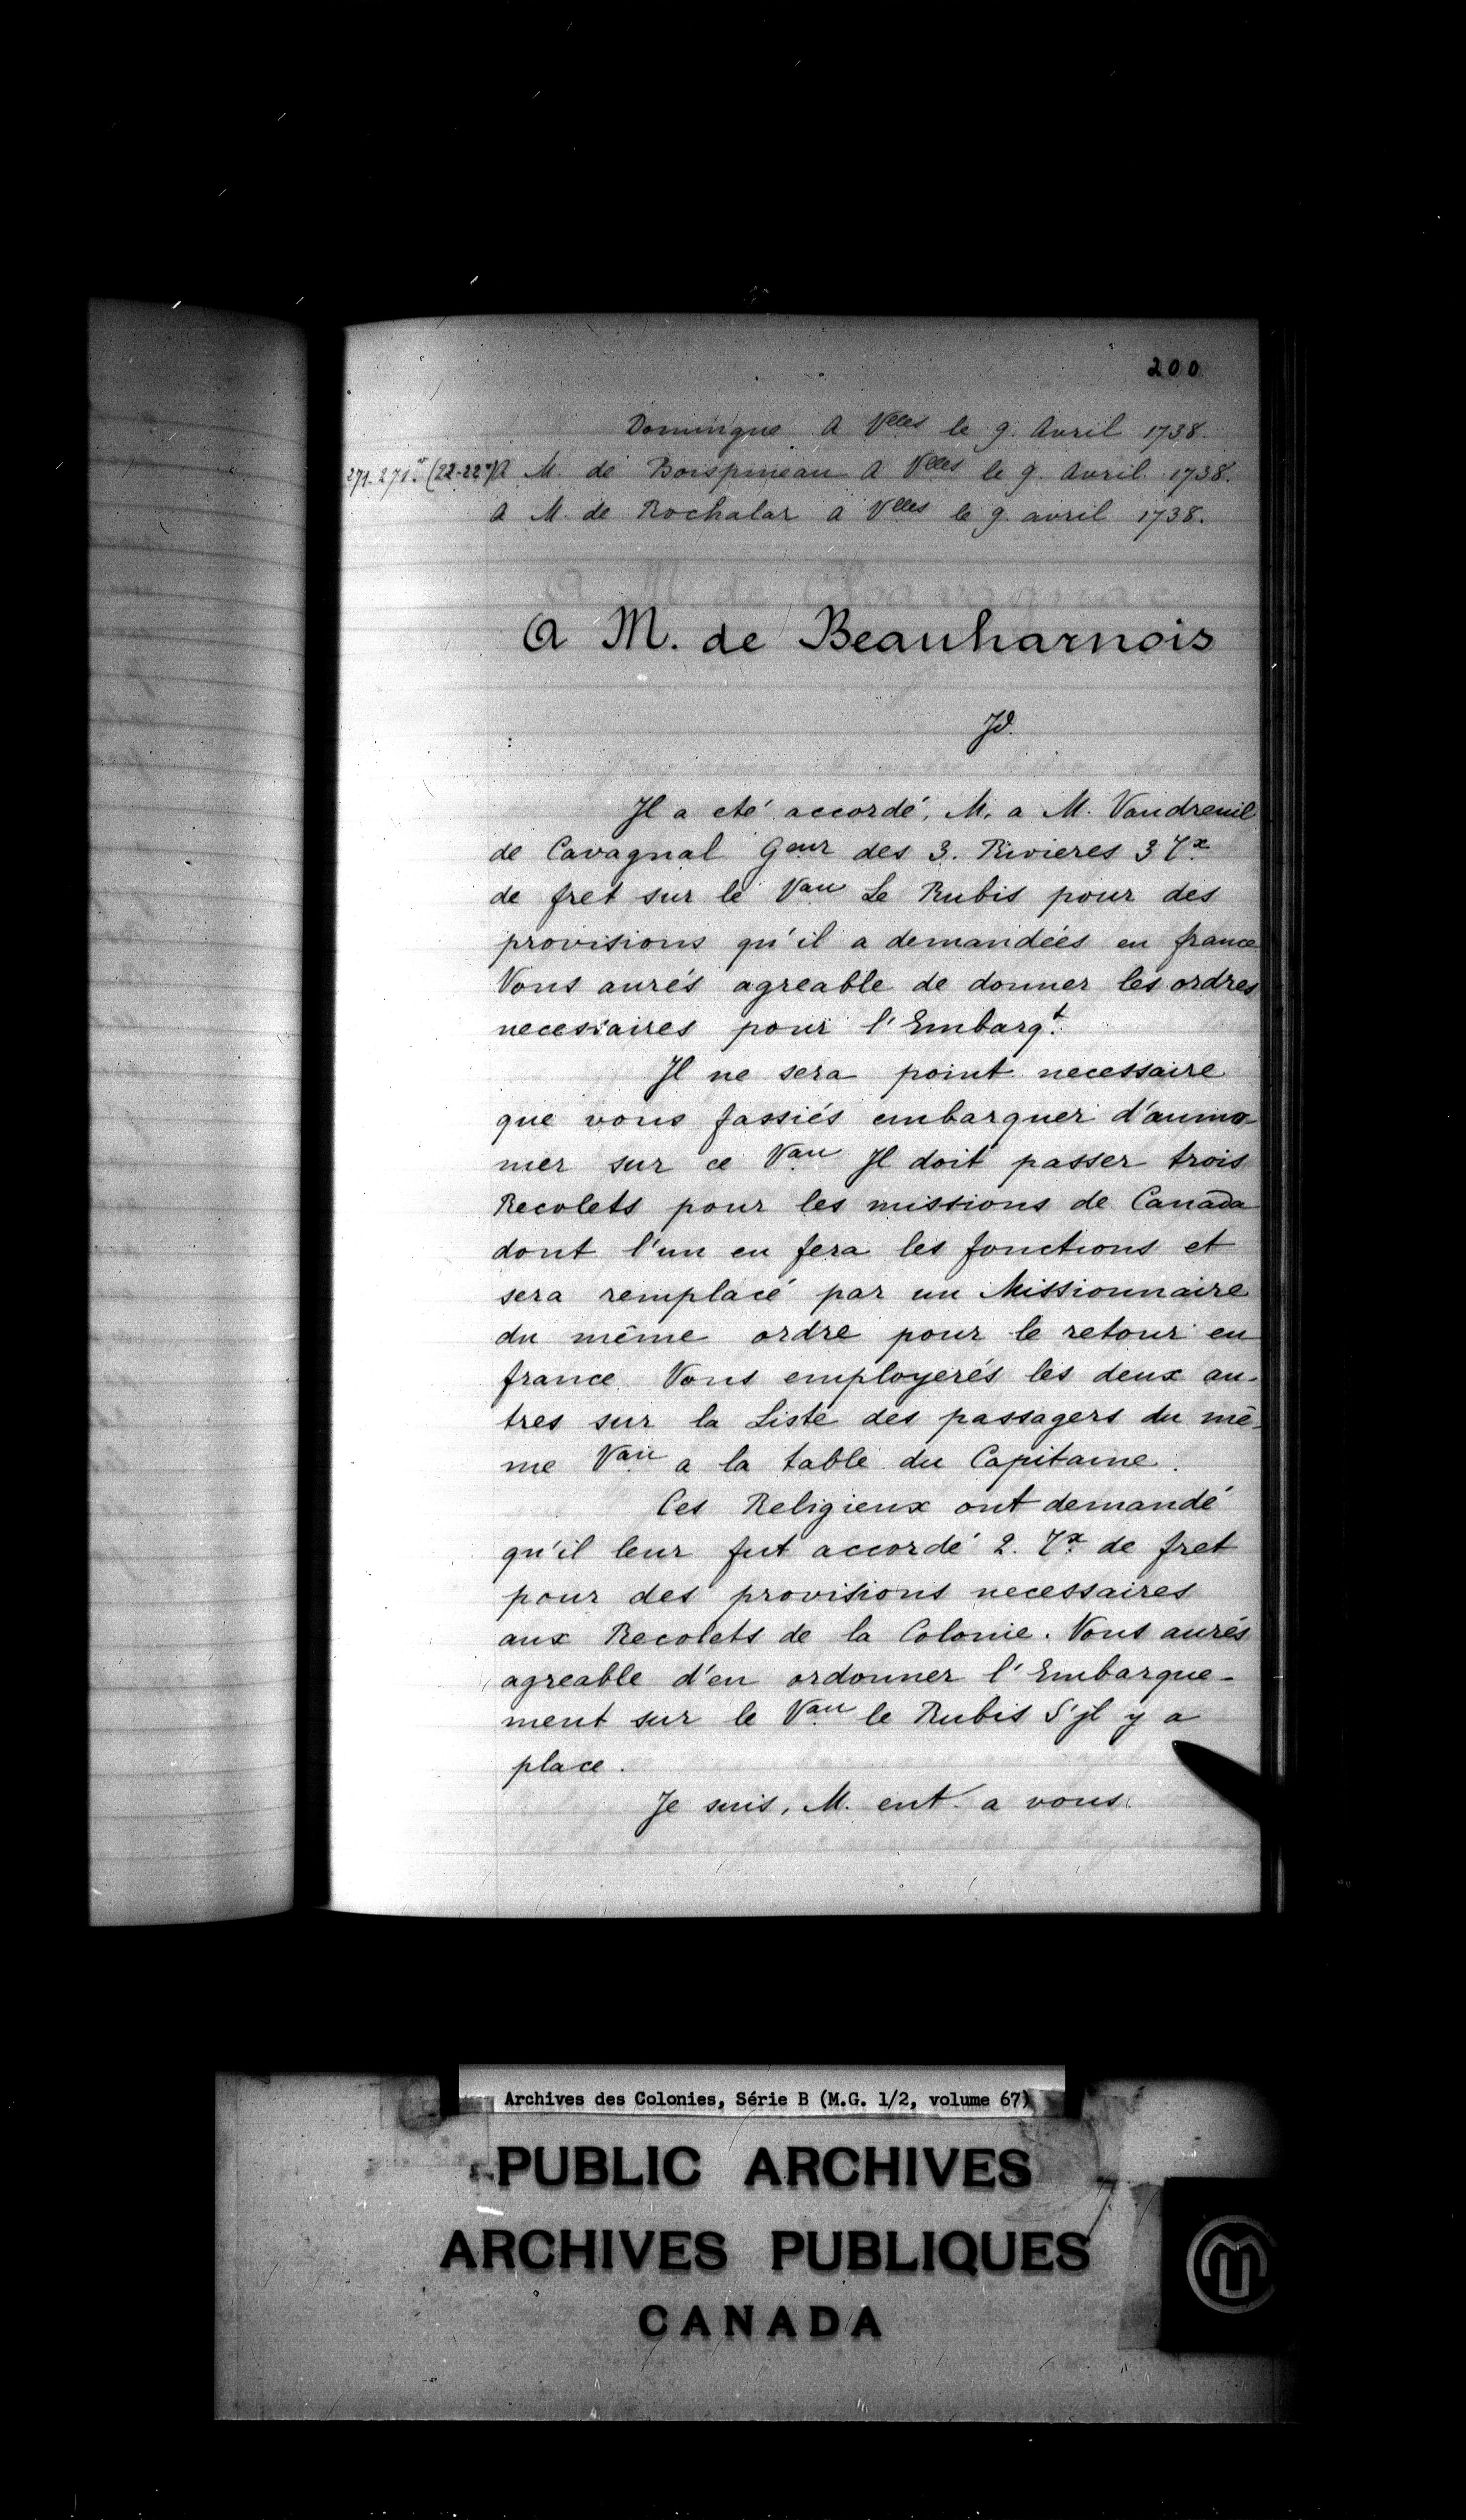 200
Domingue A Vlles le 9. Avril 1738.
271-271vo. (22-22vo) A M. de Boispineau A Vlles le 9. Avril 1738.
A M. de Rochalar a Vlles le 9. avril 1738.
A M. de Beauharnois
Jd.
Il a eté accordé, M. a M. Vaudreuil
de Cavagnal Geur des 3. Rivieres 3 Tx
de fret sur le Vau Le Rubis pour des
provisions qu'il a demandées en france
Vous aurés agreable de donner les ordres
necessaires pour l'Embarqt.
Il ne sera point necessaire
que vous fassiés embarquer d'aumo-
nier sur ce Vau Il doit passer trois
Recolets pour les missions de Canada
dont l'un en fera les fonctions et
sera remplacé par un Missionnaire
du même ordre pour le retour en
france. Vous employerés les deux au-
tres sur la Liste des passagers du mê-
me Vau a la table du Capitaine.
Ces Religieux ont demandé
qu'il leur fut accordé 2. Tx de fret
pour des provisions necessaires
aux Recolets de la Colonie. Vous aurés
agreable d'en ordonner l'Embarque-
ment sur le Vau le Rubis S'jl y a
place.
Je suis, M. ent. a vous.
Archives des Colonies, Série B (M.G. 1/2, volume 67)
PUBLIC ARCHIVES
ARCHIVES PUBLIQUES
CANADA